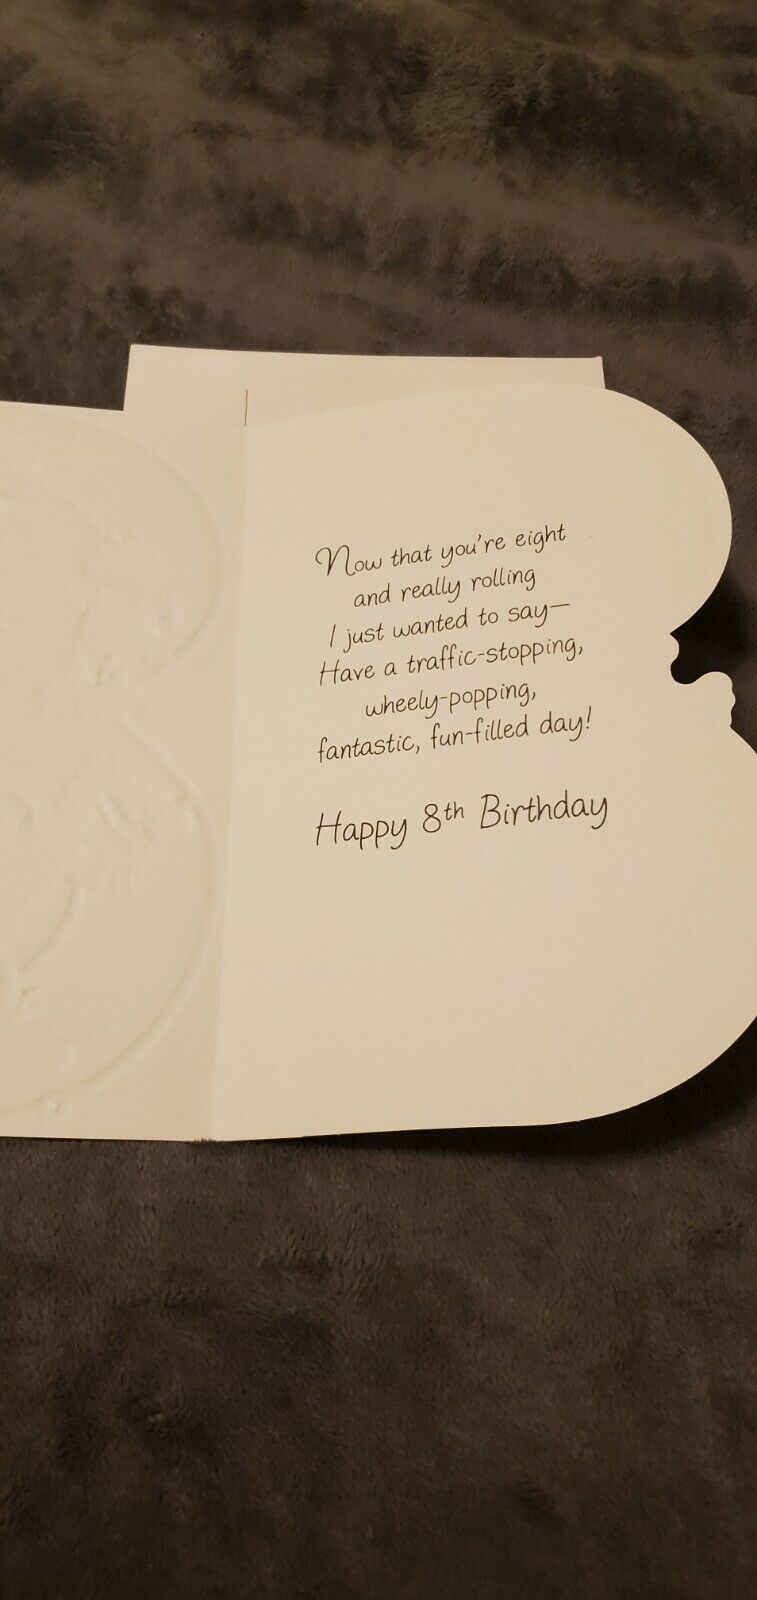 Now that you're eight
and really rolling
I just wanted to say—
Have a traffic-stopping,
wheely-popping,
fantastic, fun-filled day!
Happy 8th Birthday